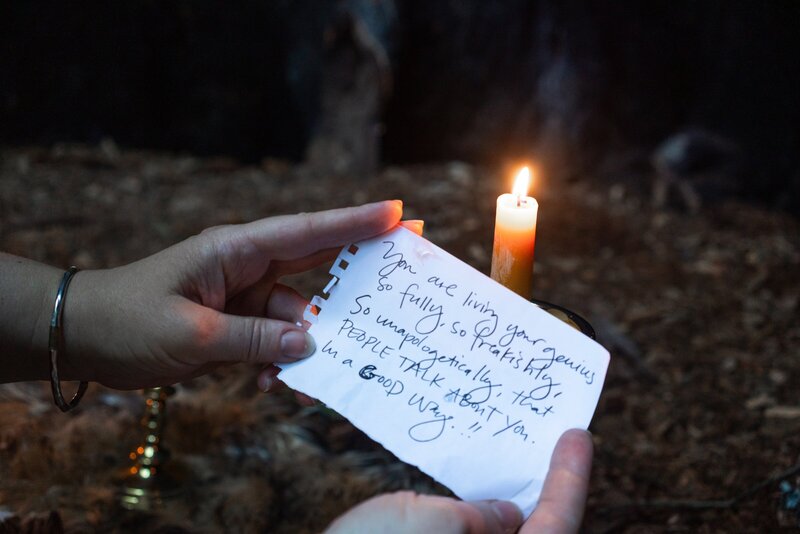 You are living your genius
so fully, so freakishly,
So unapologetically, that
PEOPLE TALK ABOUT YOU.
In a GOOD WAY.!!